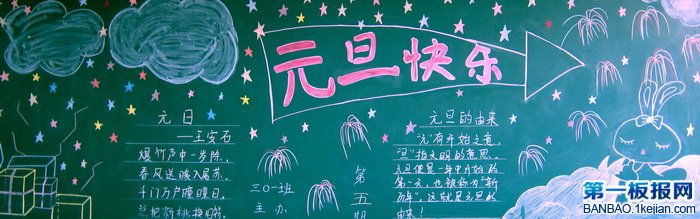 元旦快乐
元日
——王安石
爆竹声中一岁除,
春风送暖入屠苏。
千门万户曈曈日,
总把新桃换旧符。
三〇一班
主办
第五期
元旦的由来
“元”有开始之意,
“旦”指天明的意思。
元旦便是一年中开始的
第一天,也被称为“新
历年”,这就是元旦的
由来!
第一板报网
BANBAO.1kejian.com